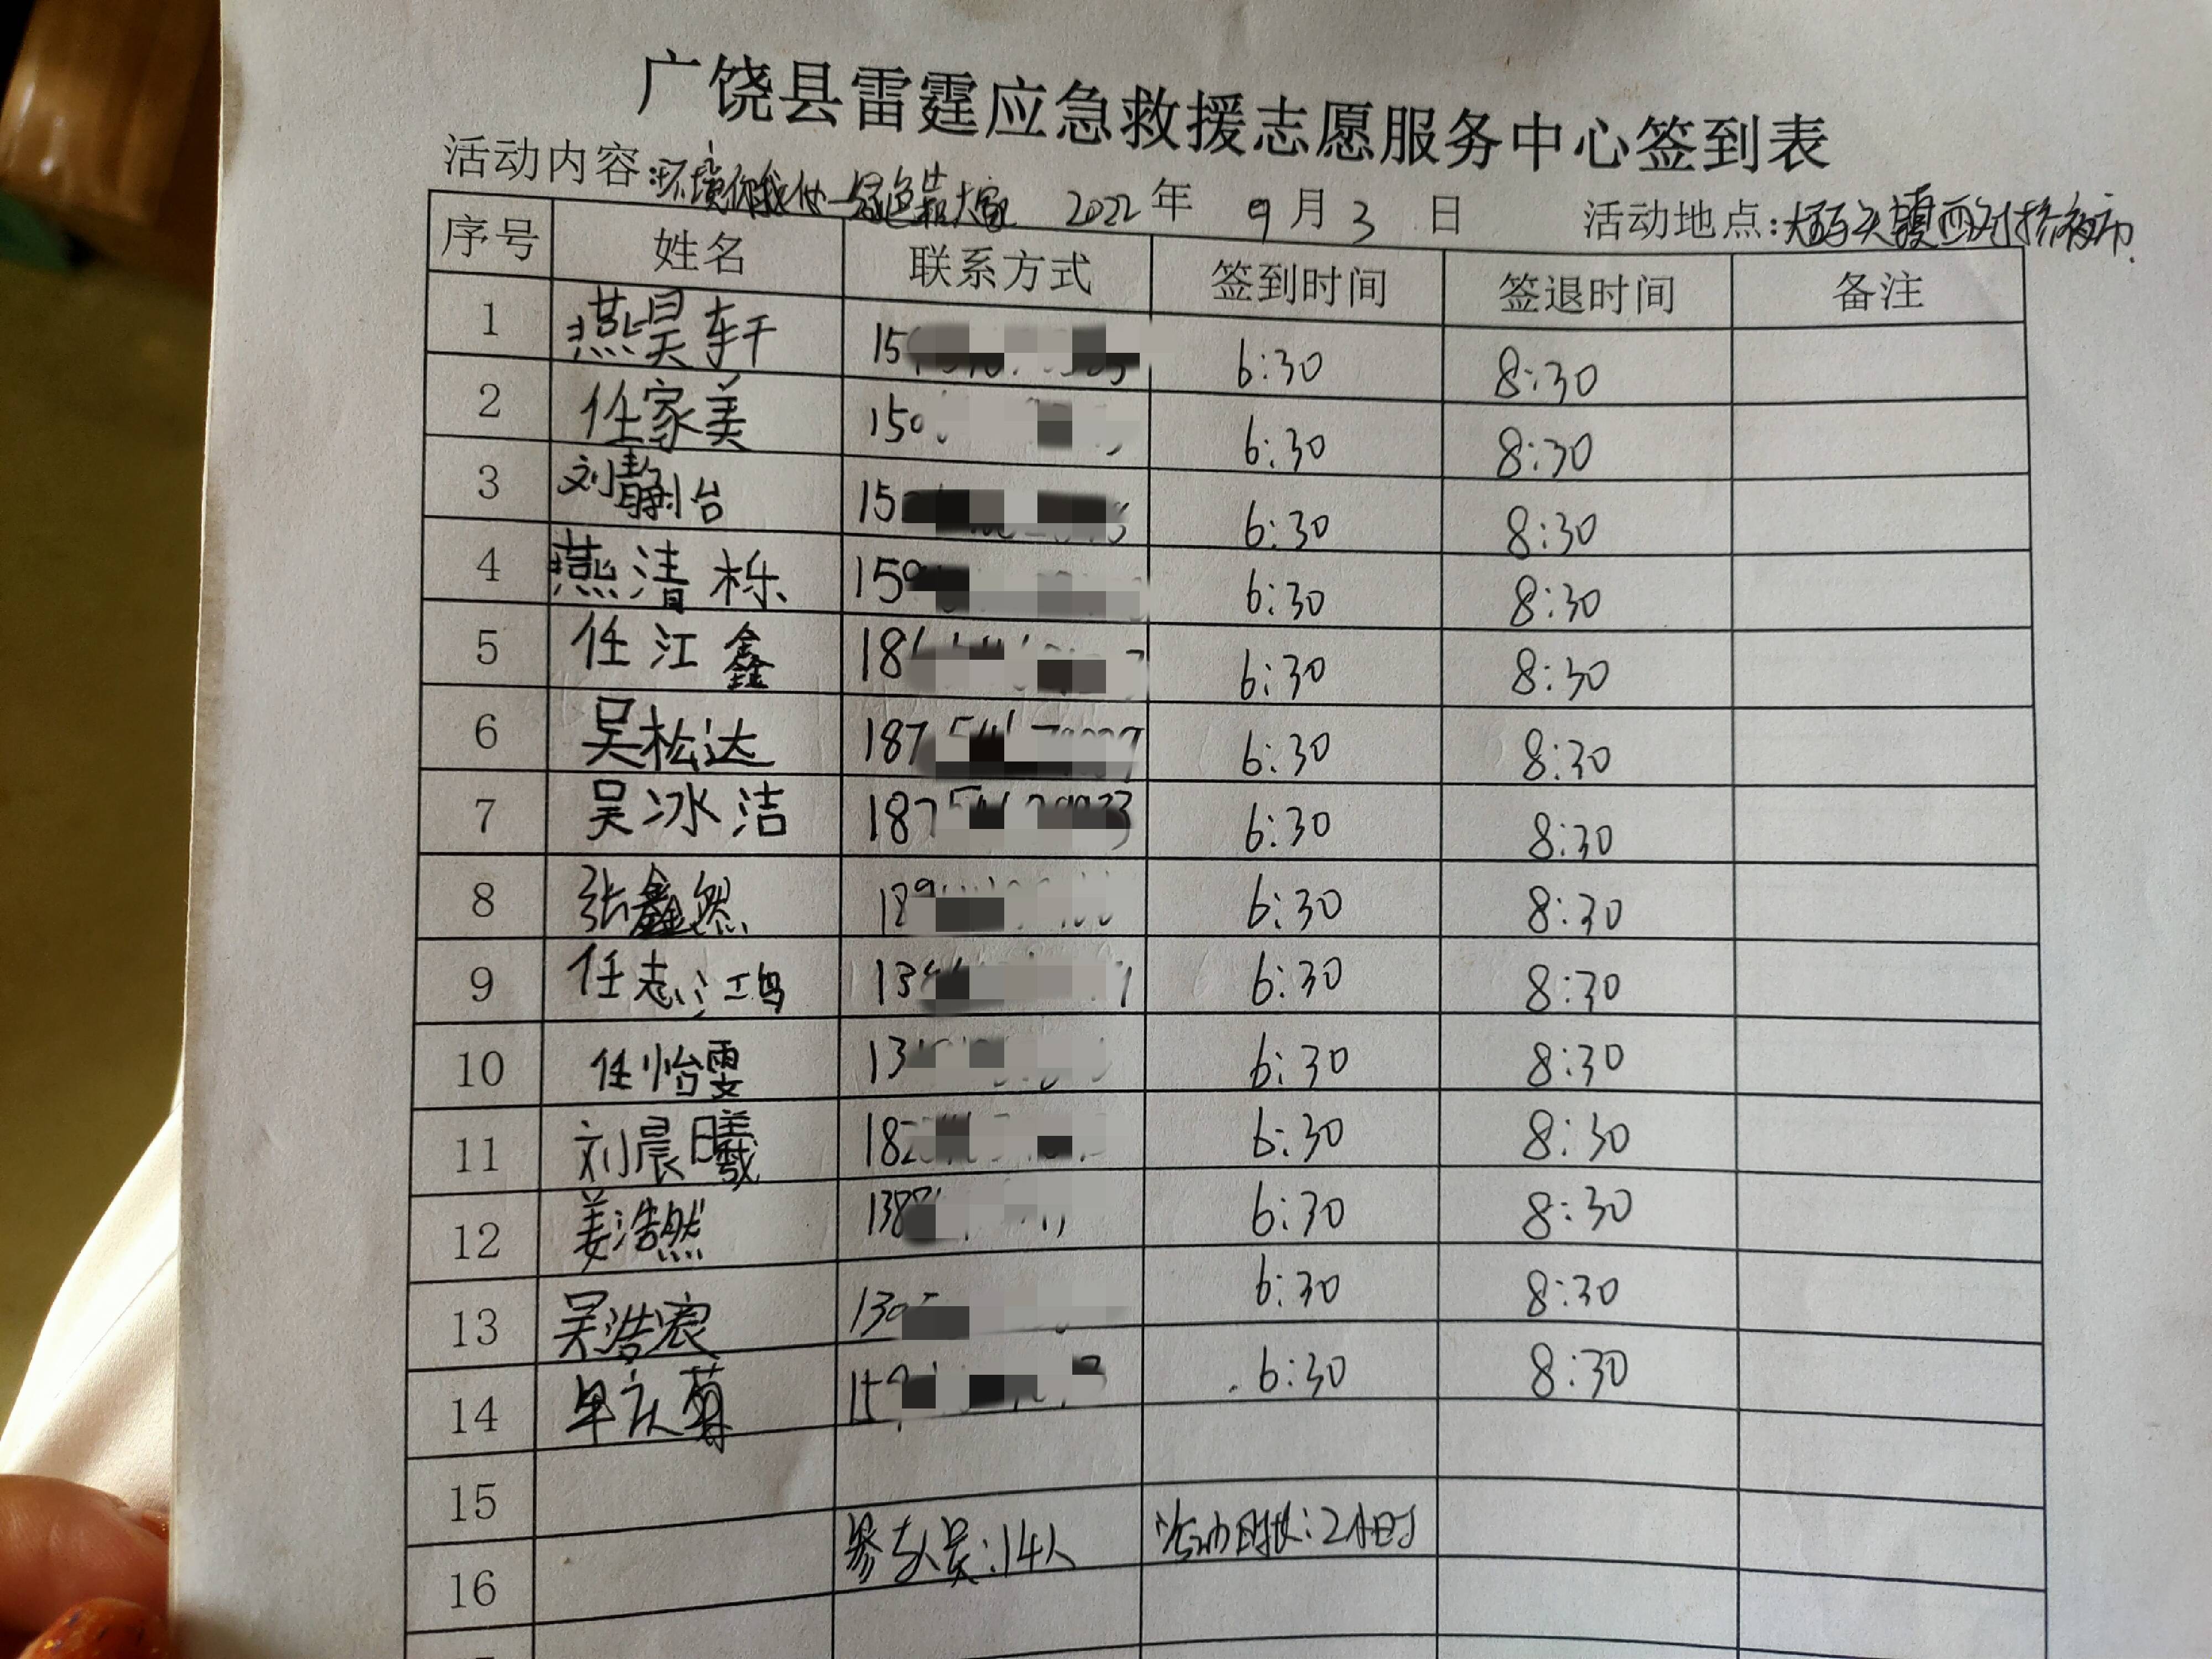 广饶县雷霆应急救援志愿服务中心签到表
活动内容:环境你我他一绿色和大家 2022年 9月3日 活动地点:大码头镇西刘桥夜市.
序号 姓名 联系方式 签到时间 签退时间 备注
1 燕昊轩 15 6:30 8:30
2 任家美 150 6:30 8:30
3 刘静 15 6:30 8:30
4 燕清栎 159 6:30 8:30
5 任江鑫 18 6:30 8:30
6 吴松达 187 6:30 8:30
7 吴冰洁 187 6:30 8:30
8 张鑫然 18 6:30 8:30
9 任志鸿 13 6:30 8:30
10 任怡雯 13 6:30 8:30
11 刘晨曦 182 6:30 8:30
12 姜浩然 138 6:30 8:30
13 吴浩宸 130 6:30 8:30
14 牟庆菊 15 6:30 8:30
15
16 参与人员:14人 活动时长:2小时